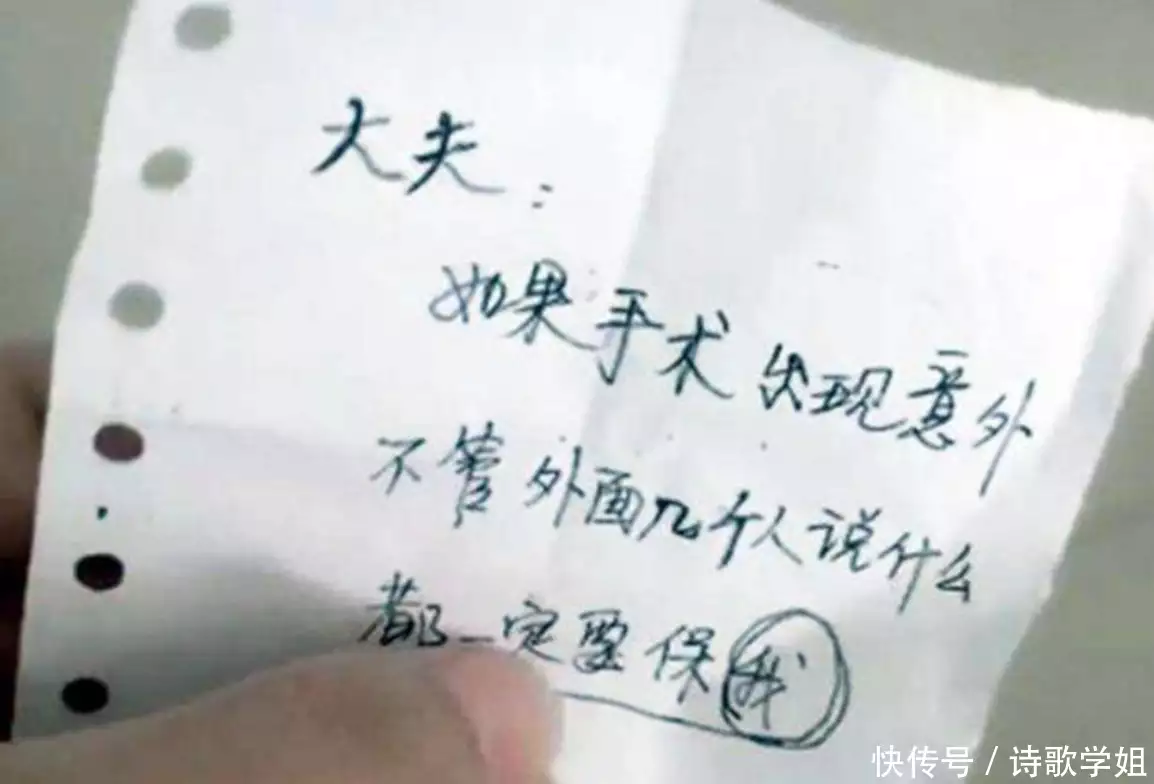 大夫：
如果手术出现意外
不管外面几个人说什么
都一定要保我
快传号／诗歌学姐